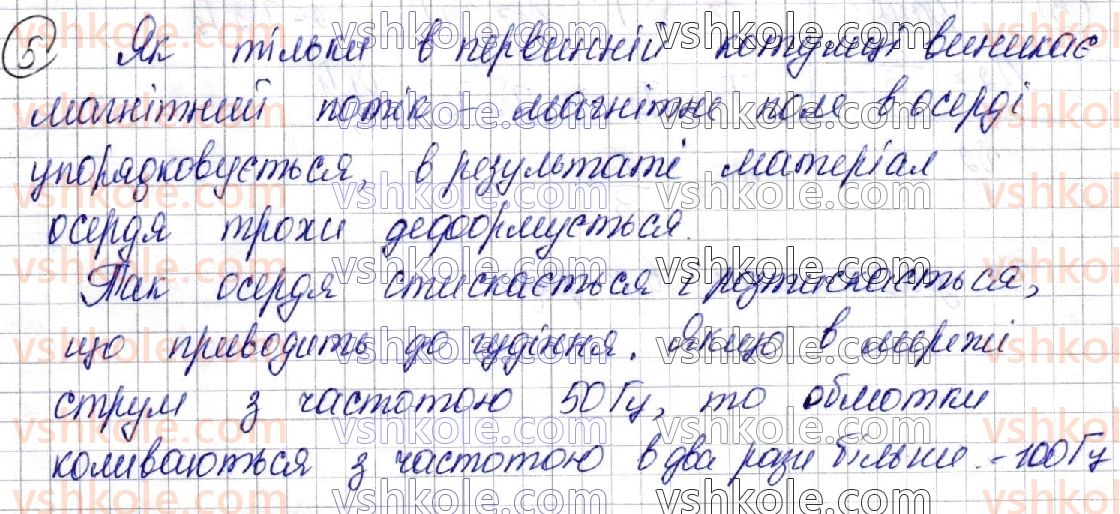 5 Як тільки в первинній котушці виникає
магнітний потік - магнітне поле в осерді
упорядковується, в результаті матеріал
осердя трохи деформується.
Так осердя стискається і розтискається,
що приводить до гудіння. Якщо в мережі
струм з частотою 50 Гц, то обмотки
коливаються з частотою в два рази більши. - 100 Гц
vshkole.com